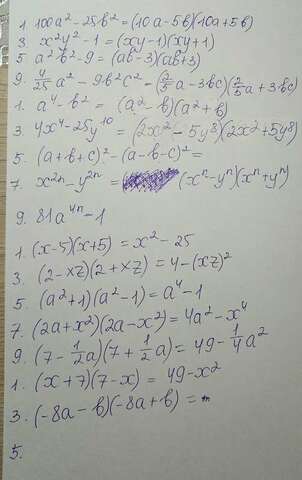 1. 100a² - 25b² = (10a - 5b)(10a + 5b)
3. x²y² - 1 = (xy - 1)(xy + 1)
5 a²b² - 9 = (ab - 3)(ab + 3)
9. 4/25 a² - 9b²c² = (2/5 a - 3bc)(2/5 a + 3bc)
1. a⁴ - b² = (a² - b)(a² + b)
3 4x⁴ - 25y¹⁰ = (2x² - 5y⁸)(2x² + 5y⁸)
5. (a + b + c)² - (a - b - c)² =
7. x²ⁿ - y²ⁿ = (xⁿ - yⁿ)(xⁿ + yⁿ)
9. 81a⁴ⁿ - 1
1. (x - 5)(x + 5) = x² - 25
3. (2 - xz)(2 + xz) = 4 - (xz)²
5. (a² + 1)(a² - 1) = a⁴ - 1
7. (2a + x²)(2a - x²) = 4a² - x⁴
9. (7 - 1/2 a)(7 + 1/2 a) = 49 - 1/4 a²
1. (x + 7)(7 - x) = 49 - x²
3. (-8a - b)(-8a + b) =
5.